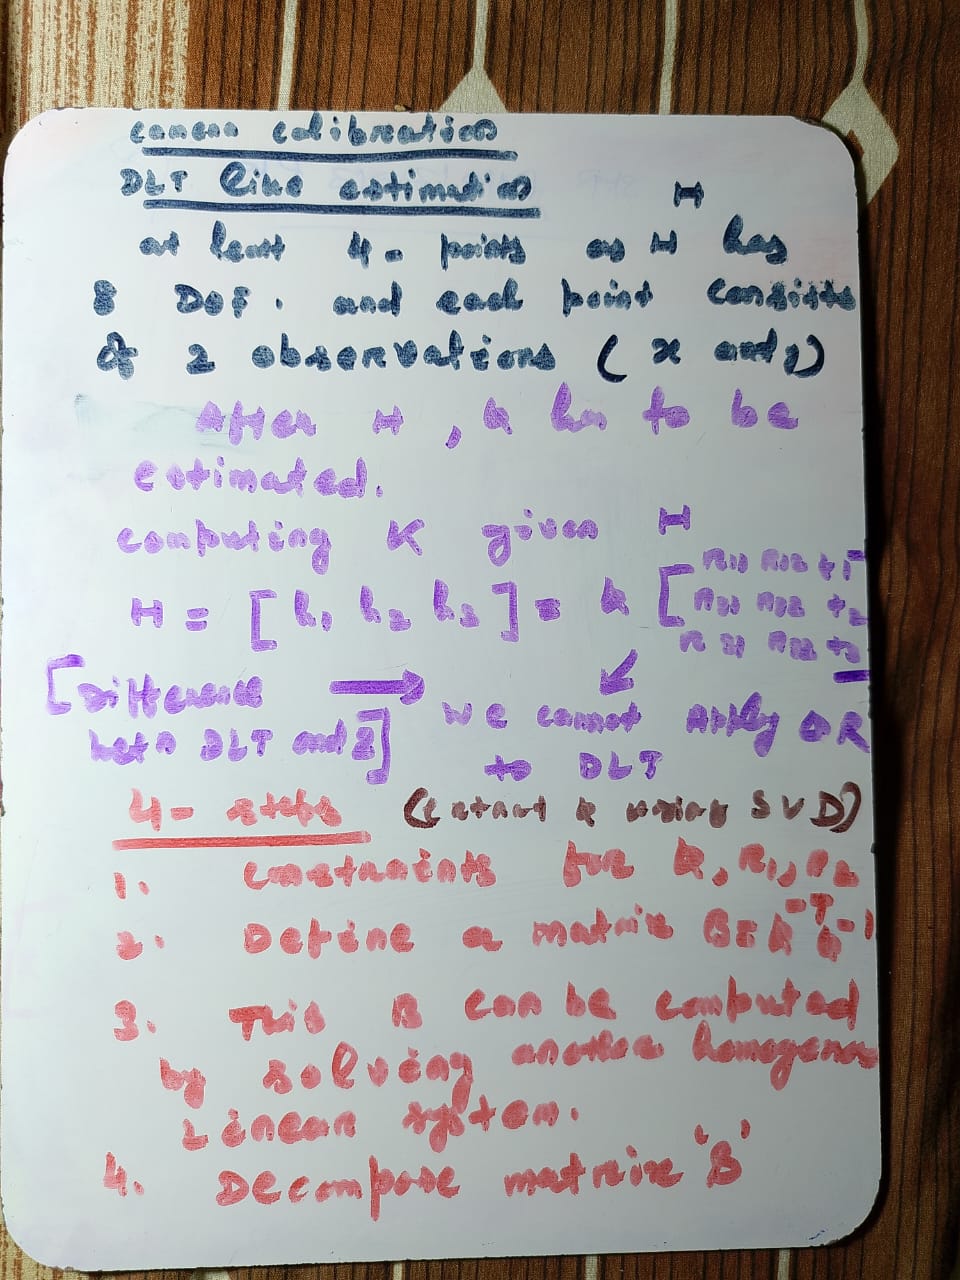 camera calibration
DLT like estimation H
at least 4- points as H has
8 DOF. and each point consists
of 2 observations (x and y)
After H, k has to be
estimated.
computing K given H
H = [h1 h2 h3] = k [r11 r12 t1
r21 r22 t2
r31 r32 t3
[Difference → we cannot apply QR
betn DLT and Z] to DLT
4- steps (extract k using SVD)
1. constraints for k, r1, r2
2. Define a matrix B = k^-T k^-1
3. This B can be computed
by solving another homogenous
Linear system.
4. Decompose matrix 'B'